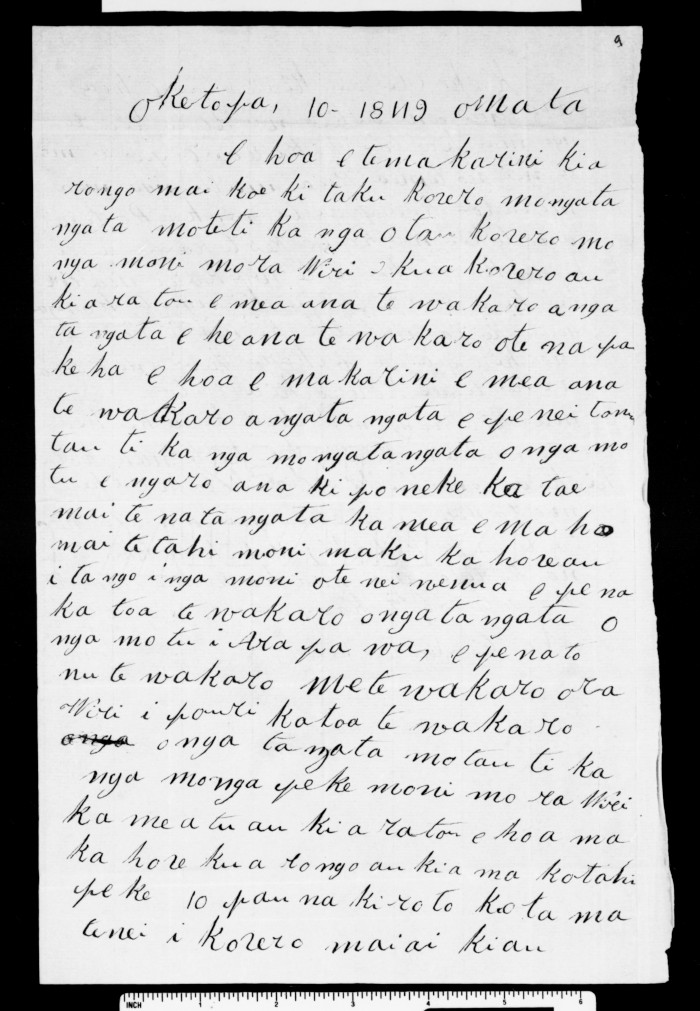 9
Oketopa, 10- 1849 omata
e hoa e te ma karini kia
rongo mai koe ki taku korero mo ngata
ngata moteti ka nga o tau korero mo
nga moni mora Wiri kua korero au
kiara tou e mea ana te wakaro anga
ta ngata e he ana te wa karo ote na pa
ke ha e hoa e makarini e mea ana
te wakaro a ngata ngata e pe nei tonu
tau ti ka nga mo ngatangata o nga mo
tu e ngaro ana ki po neke ka tae
mai te na tangata ka mea e ma ho
mai te tahi moni maku ka hore au
i ta ngo i nga moni ote nei wenua e pe na
ka toa te wakaro o ngatangata o
nga mo tu i Ara pa wa, e pe na to
nu te wakaro me te wakaro o ra
Wiri i pouri katoa te wakaro
onga o nga ta ngata motau ti ka
nga monga peke moni mo ra Wiri
ka mea tu au ki a ratou e hoa ma
ka hore kua rongo au kia ma kotahi
peke 10 pau na ki roto ko ta ma
tenei i korero maiai kiau
INCH 1 2 3 4 5 6